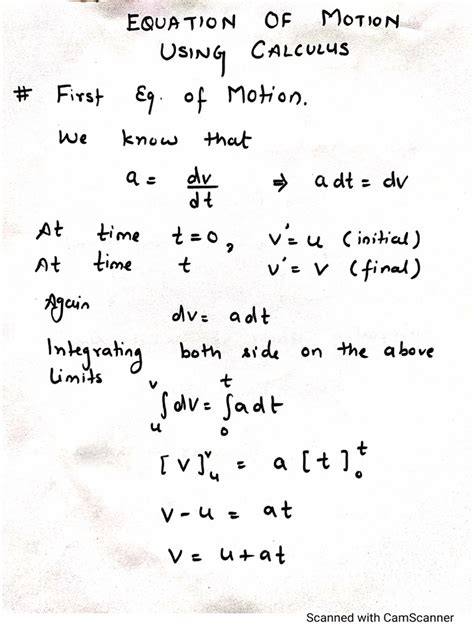 EQUATION OF MOTION
USING CALCULUS
# First Eq. of Motion.
We know that
a = dv/dt ⇒ a dt = dv
At time t=0, v'= u (initial)
At time t v'= v (final)
Again dv= adt
Integrating both side on the above
limits
∫ᵤᵛ dv = ∫₀ᵗ a dt
[v]ᵤᵛ = a [t]₀ᵗ
v-u = at
v = u+at
Scanned with CamScanner